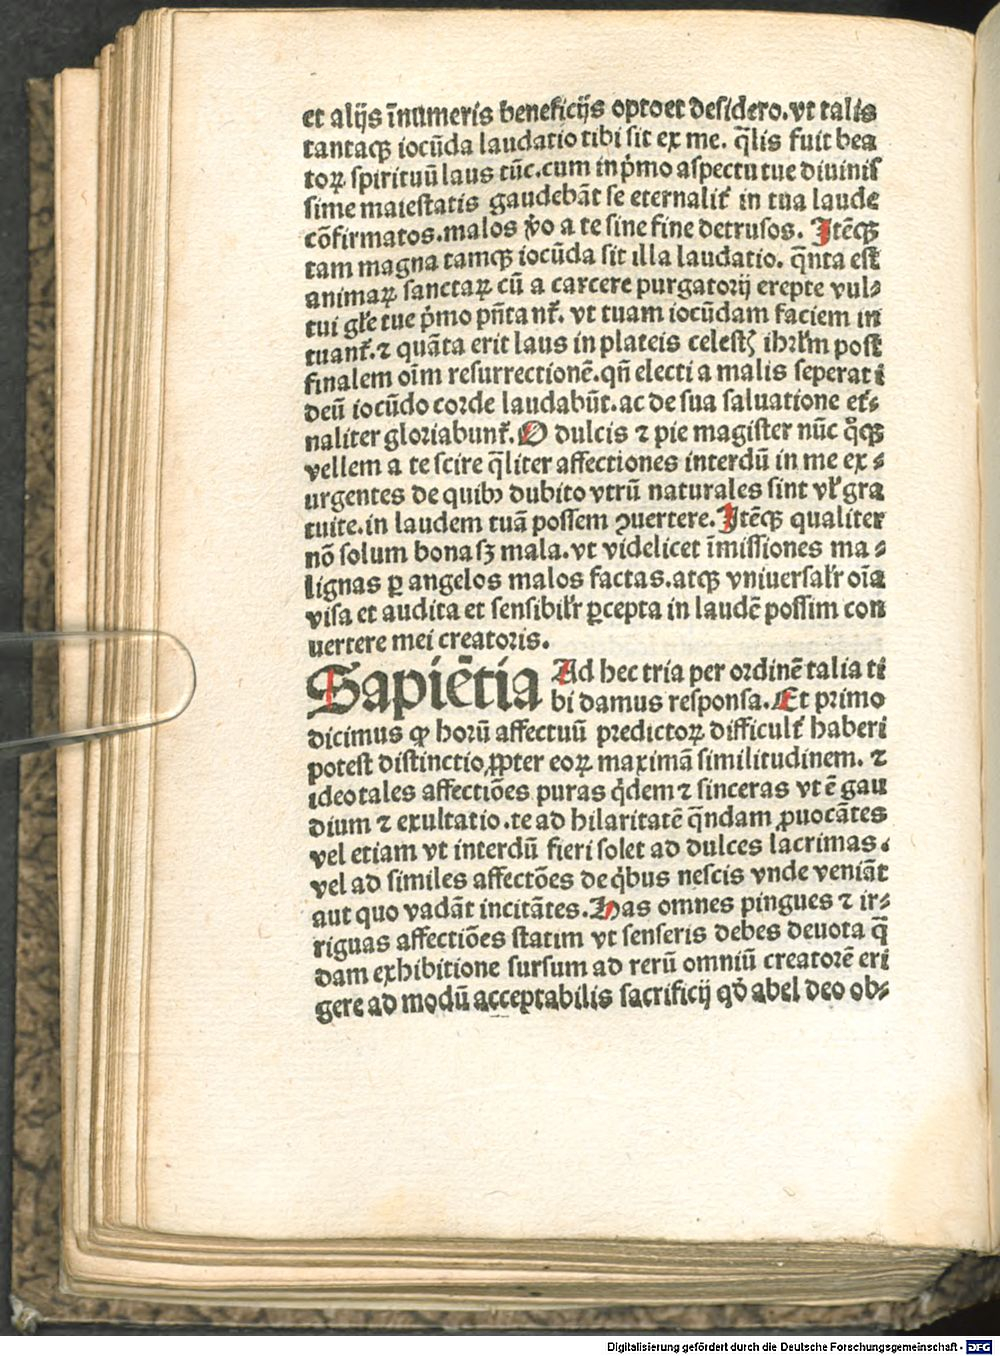 et alijs īnumeris beneficijs opto et desidero. vt talis
tantaqꝫ iocūda laudatio tibi sit ex me. q̄lis fuit bea
toꝝ spirituū laus tūc. cum in p̄mo aspectu tue diuinis
sime maiestatis gaudebāt se eternalit̄ in tua laude
cōfirmatos. malos v̄o a te sine fine detrusos. Itēqꝫ
tam magna tamqꝫ iocūda sit illa laudatio. q̄nta est
animaꝝ sanctaꝝ cū a carcere purgatorij erepte vul⸗
tui gl̄e tue p̄mo pn̄tant̄. vt tuam iocūdam faciem in
tuant̄. ⁊ quāta erit laus in plateis celestꝭ ihrl̄m post
finalem oīm resurrectionē. qn̄ electi a malis seperati
deū iocūdo corde laudabūt. ac de sua saluatione et̄⸗
naliter gloriabunt̄. O dulcis ⁊ pie magister nūc qͦqꝫ
vellem a te scire q̄liter affectiones interdū in me ex⸗
urgentes de quibꝰ dubito vtrū naturales sint vl̄ gra
tuite. in laudem tuā possem ꝯuertere. Itēqꝫ qualiter
nō solum bona sꝫ mala. vt videlicet īmissiones ma⸗
lignas ꝑ angelos malos factas. atqꝫ vniuersalr̄ oīa
visa et audita et sensibilr̄ ꝑcepta in laudē possim con
uertere mei creatoris.
Sapiētia Ad hec tria per ordinē talia ti
bi damus responsa. Et primo
dicimus ꝙ horū affectuū predictoꝝ difficult̄ haberi
potest distinctio, ꝓpter eoꝝ maximā similitudinem. ⁊
ideo tales affectiōes puras qͥdem ⁊ sinceras vt ē gau
dium ⁊ exultatio. te ad hilaritatē q̄ndam ꝓuocātes
vel etiam vt interdū fieri solet ad dulces lacrimas.
vel ad similes affectōes de qͥbus nescis vnde veniāt
aut quo vadāt incitātes. Has omnes pingues ⁊ ir⸗
riguas affectiōes statim vt senseris debes deuota q̄
dam exhibitione sursum ad rerū omniū creatorē eri
gere ad modū acceptabilis sacrificij qd̄ abel deo ob⸗
Digitalisierung gefördert durch die Deutsche Forschungsgemeinschaft - DFG